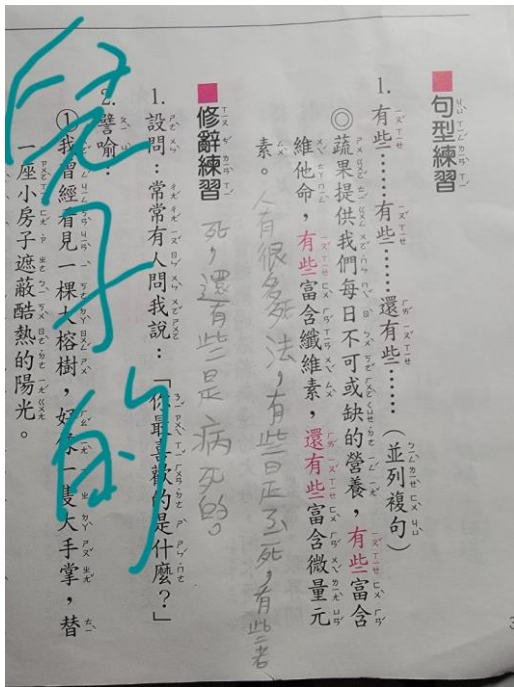 句型練習
1. 有些……有些……還有些……(並列複句)
◎蔬果提供我們每日不可或缺的營養，有些富含
維他命，有些富含纖維素，還有些富含微量元
素。
人有很多死法，有些是死，有些老
死，還有些是病死的。
修辭練習
1. 設問：常常有人問我說：「你最喜歡的是什麼？」
2. 譬喻：
①我曾經看見一棵大榕樹，好像一隻大手掌，替
一座小房子遮蔽酷熱的陽光。
兒子的